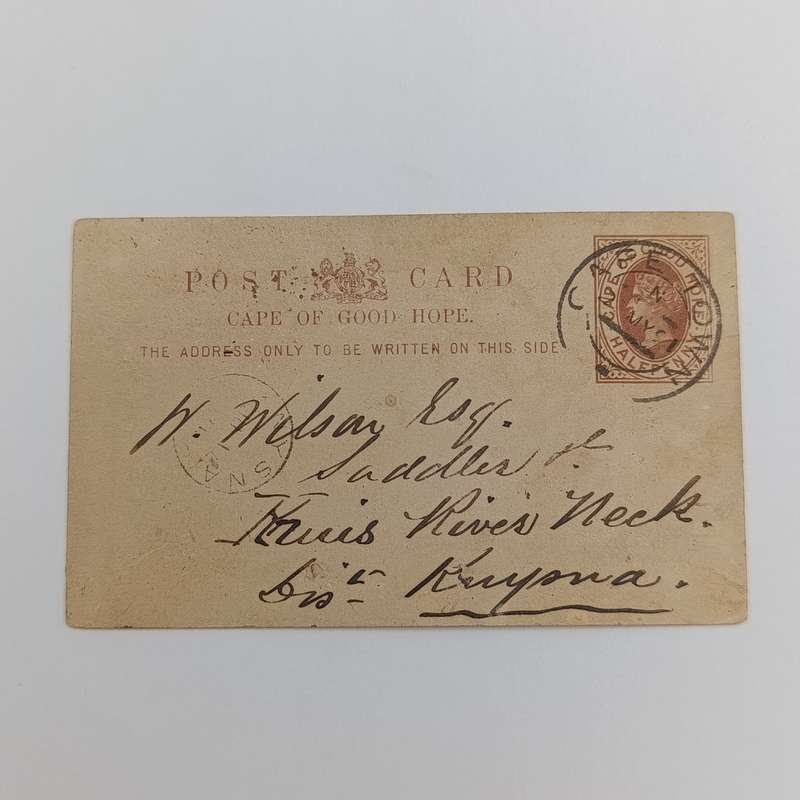 POST CARD
CAPE OF GOOD HOPE.
THE ADDRESS ONLY TO BE WRITTEN ON THIS SIDE
CAPE OF GOOD HOPE
HALFPENNY
CAPE TOWN
N
MY
W. Wilson Esq.
Saddler
River Neck.
Dist Knysna.
SNA